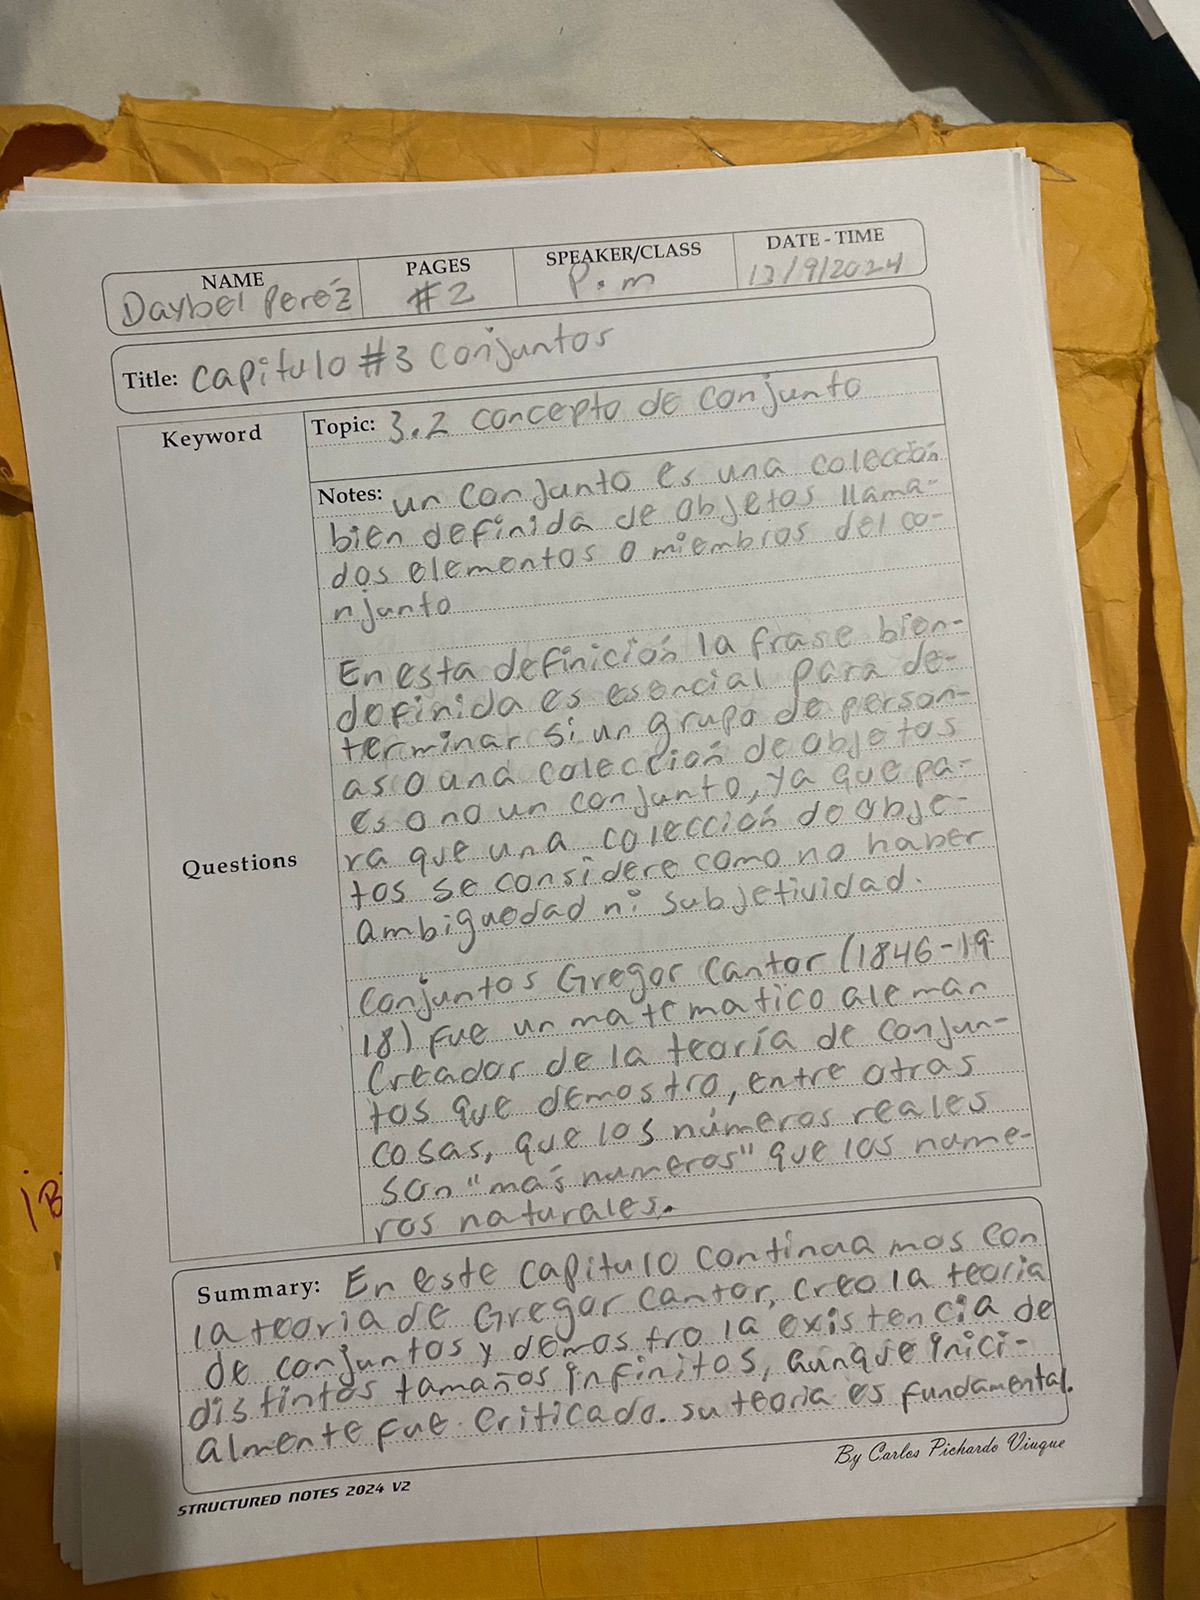 NAME PAGES SPEAKER/CLASS DATE - TIME
Daybel Peréz #2 P.m 13/9/2024
Title: Capitulo #3 Conjuntos
Keyword
Topic: 3.2 concepto de conjunto
Notes: un conjunto es una colección
bien definida de objetos llama-
dos elementos o miembros del co-
njunto
En esta definición la frase bien-
definida es esencial para de-
terminar si un grupo de person-
as o una colección de objetos
es o no un conjunto, ya que pa-
ra que una colección de obje-
Questions
tos se considere como no haber
ambiguedad ni subjetividad.
Conjuntos Gregor Cantor (1846-19
18) fue un matematico alemán
Creador de la teoría de conjun-
tos que demostro, entre otras
cosas, que los números reales
son "más numeros" que los nume-
ros naturales.
Summary: En este capitulo continua mos con
la teoria de Gregor Cantor, creo la teoria
de conjuntos y demostro la existencia de
distintos tamaños infinitos, aunque inici-
almente fue criticado. su teoria es fundamental.
By Carlos Pichardo Viuque
STRUCTURED NOTES 2024 V2
¡B